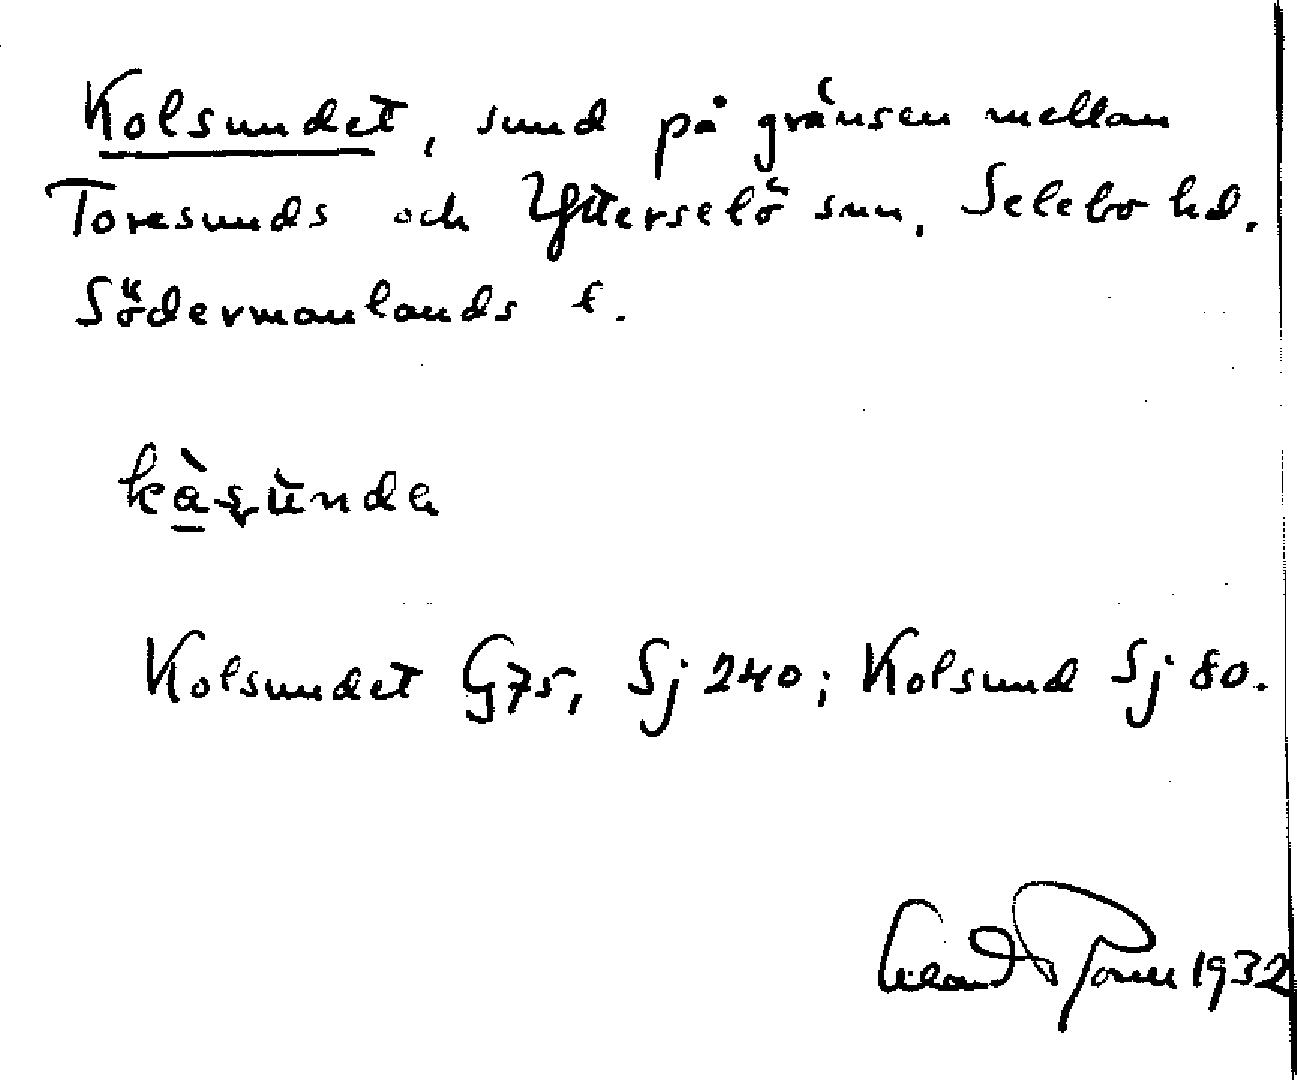 Kolsundet, sund på gränsen mellan
Toresunds och Ytterselö snn, Selebo hd.
Södermanlands l.
Kolsundet G75, Sj 240; Kolsund Sj 80.
1932